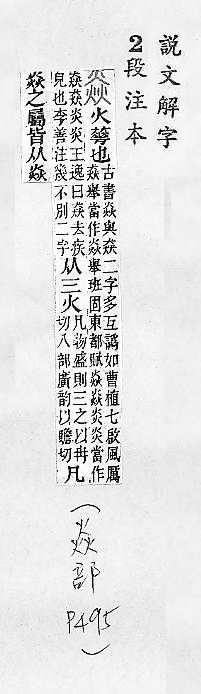 說文解字
2段注本
焱 火華也
古書焱與猋二字多互譌如曹植七啟風厲
猋舉當作焱舉班固東都賦焱焱炎炎當作
猋猋炎炎王逸曰猋去疾
皃也李善注幾不別二字
从三火
凡物盛則三之以冄
切八部廣韵以贍切
凡
焱之屬皆从焱
(焱部 P495)